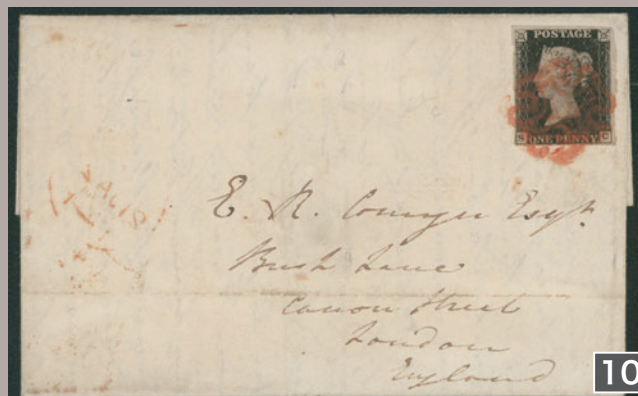 POSTAGE
S ONE PENNY C
PAID
E. R. Esqr.
Bush Lane
Canon Street
London
England
10